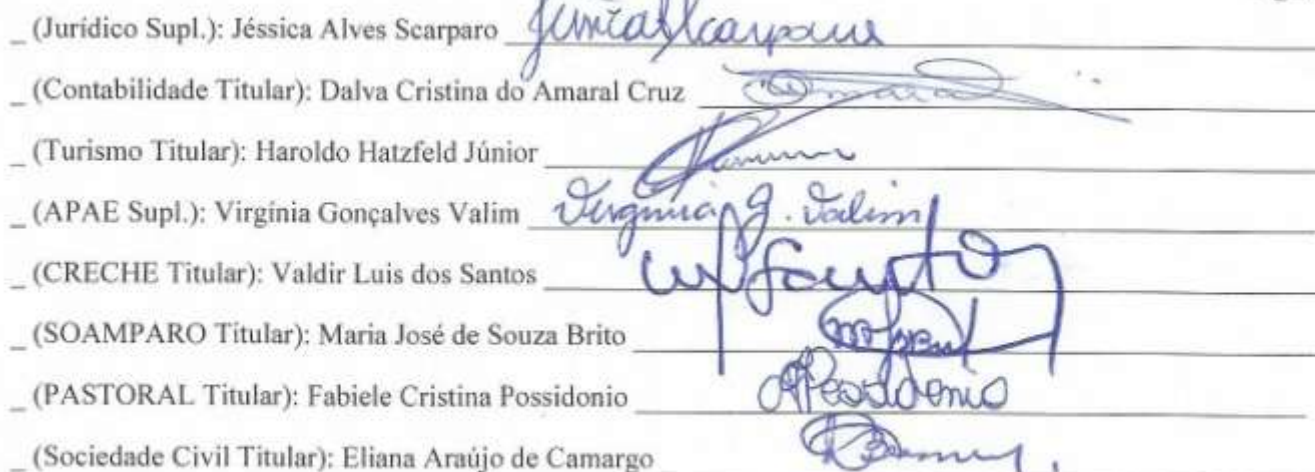 _ (Jurídico Supl.): Jéssica Alves Scarparo
_ (Contabilidade Titular): Dalva Cristina do Amaral Cruz
_ (Turismo Titular): Haroldo Hatzfeld Júnior
_ (APAE Supl.): Virgínia Gonçalves Valim Virgínia G. Valim
_ (CRECHE Titular): Valdir Luis dos Santos
_ (SOAMPARO Titular): Maria José de Souza Brito
_ (PASTORAL Titular): Fabiele Cristina Possidonio
_ (Sociedade Civil Titular): Eliana Araújo de Camargo